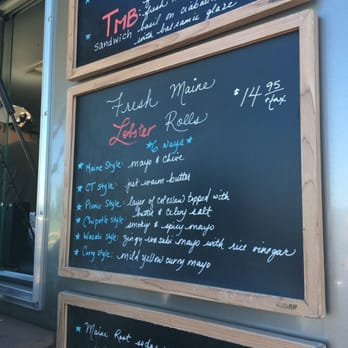 TMB: Fresh
sandwich basil on ciabatta
with balsamic glaze
Fresh Maine
Lobster Rolls
$14.95
*6 ways*
* Maine Style: mayo & chive
* CT Style: hot warm butter
* Picnic Style: layer of coleslaw topped with
butter & celery salt
* Chipotle Style: smoky & spicy mayo
* Wasabi Style: zingy wasabi mayo with rice vinegar
* Curry Style: mild yellow curry mayo
* Maine Root sodas